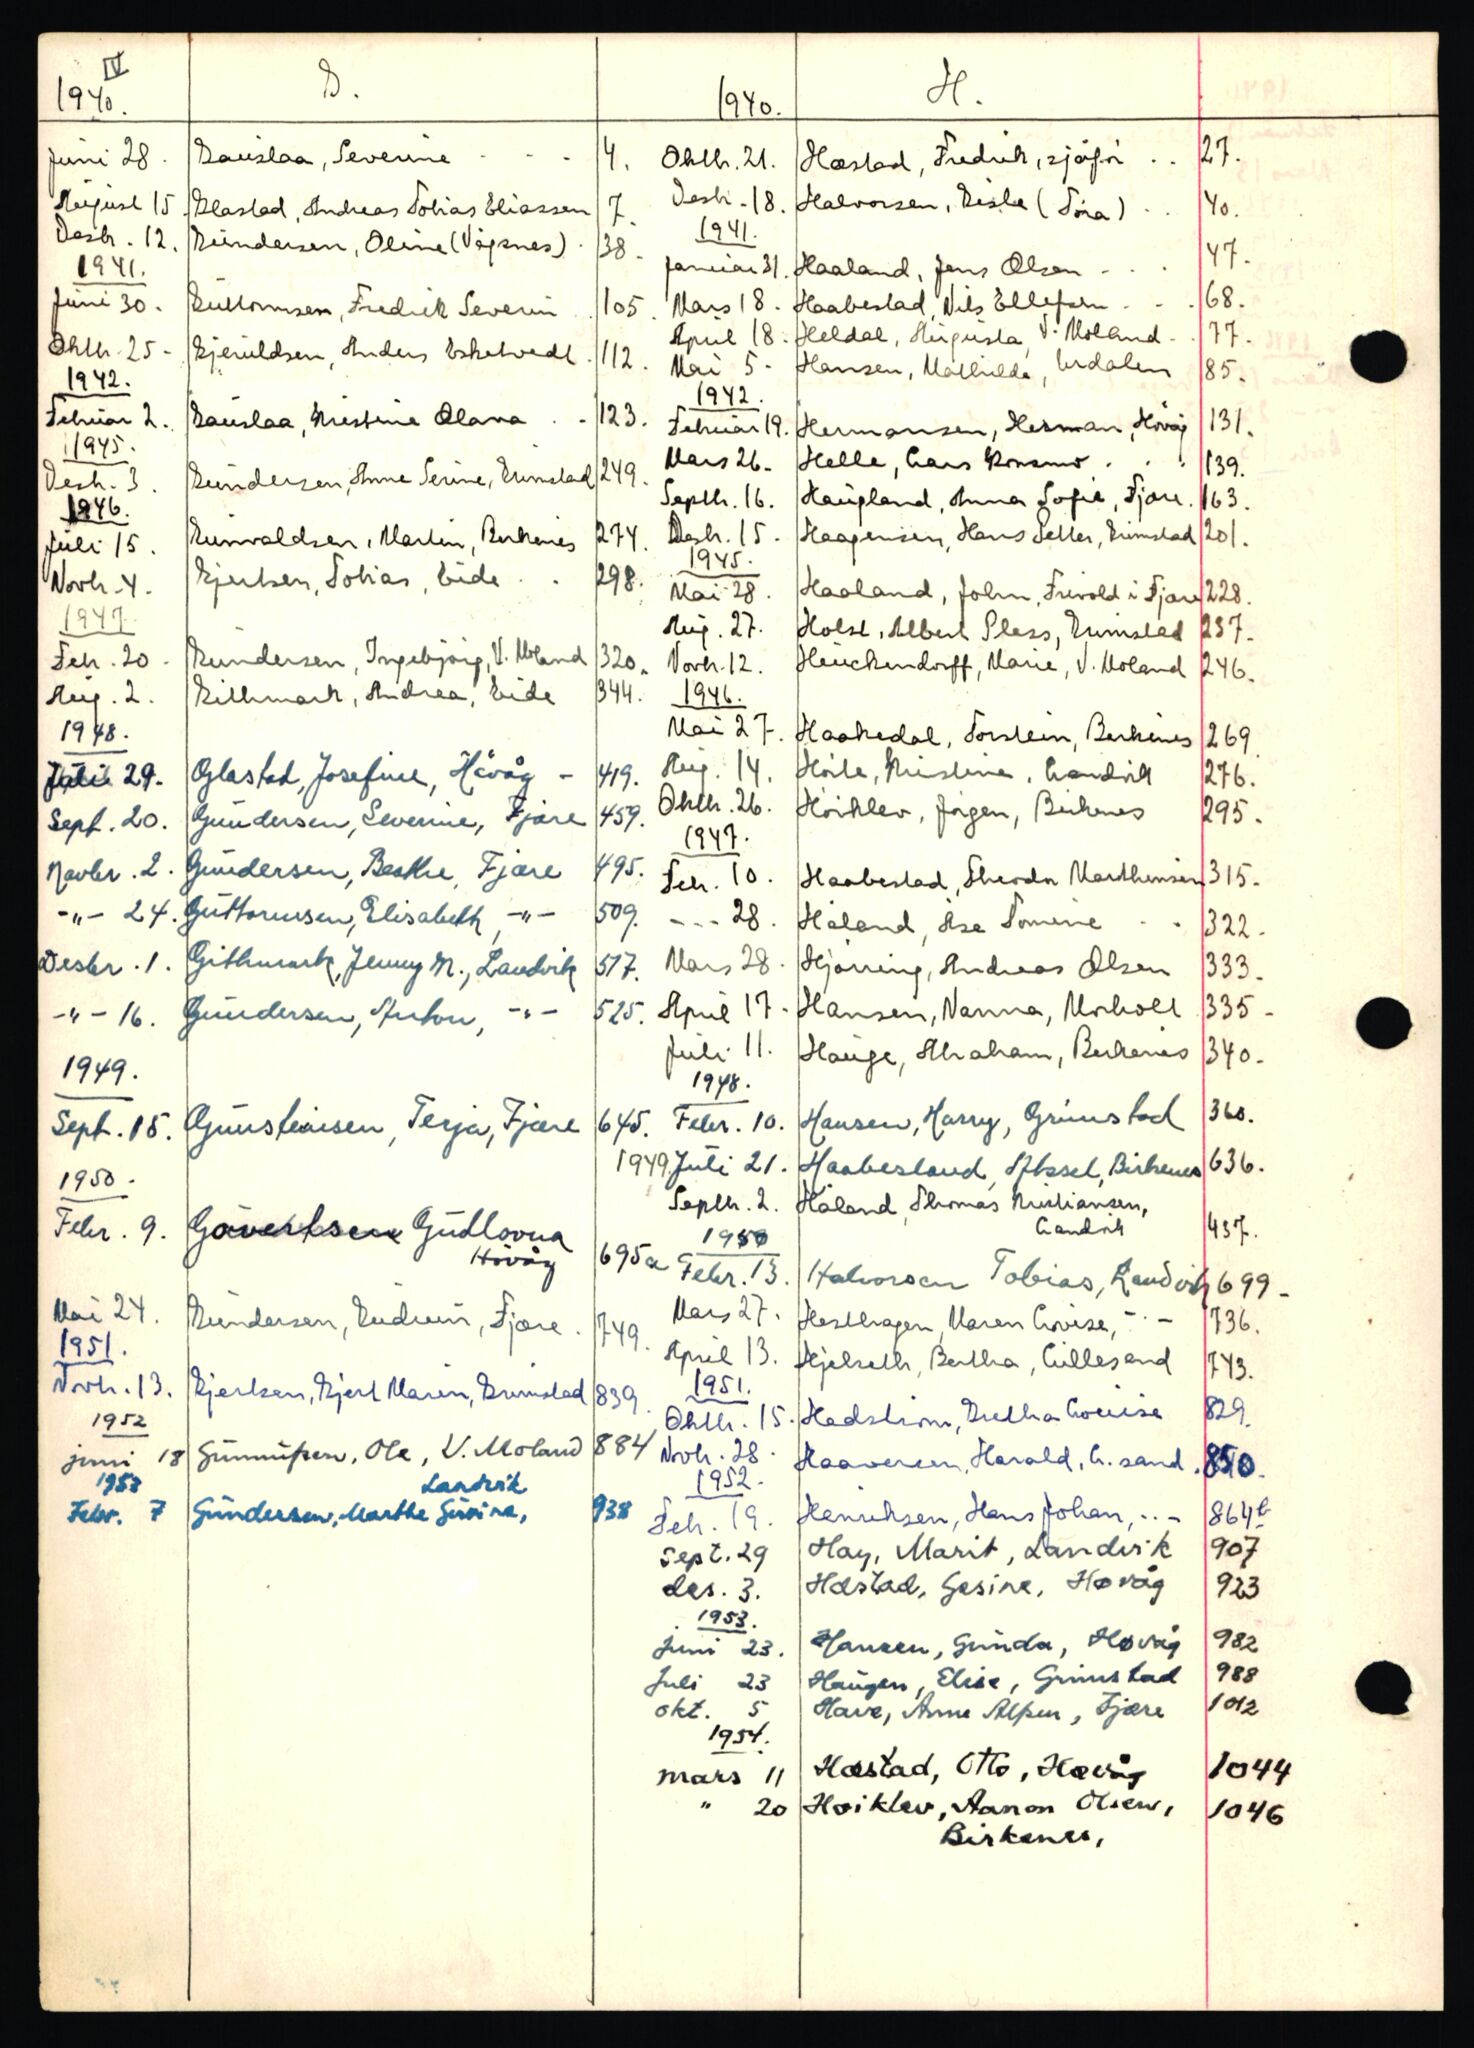 IV
1940.
G.
Juni 28. Gauslaa, Severine - - - 4.
August 15. Glastad, Andreas Tobias Eliassen 7.
Desbr. 12. Gundersen, Oline (Vågsnes) . 38.
1941.
Juni 30. Guttormsen, Fredrik Severin 105.
Oktb. 25 - Gjeruldsen, Anders Eskelvedt . 112.
1942.
Februar 2. Gauslaa, Kristine Olava . - 123.
1945.
Desb. 3. Gundersen, Anne Serine, Grimstad 249.
1946.
Juli 15. Gunvaldsen, Martin, Birkenes 274.
Novb. 4. Gjertsen, Tobias, Eide . . 298.
1947
Feb. 20 - Gundersen, Ingebjørg, V. Moland 320.
Aug. 2. Githmark, Andrea, Eide 344.
1948.
Juli 29. Glastad, Josefine, Høvåg - 419.
Sept. 20. Gundersen, Severine, Fjære 459.
Novbr. 2. Gundersen, Beathe, Fjære 495.
-"- 24. Guttormsen, Elisabeth, -"- 509.
Desbr. 1. Githmark, Jenny M., Landvik 517.
-"- 16. Gundersen, Anton, -"- 525.
1949.
Sept. 15. Gunsteinsen, Terja, Fjære 645.
1950.
Febr. 9. Govertsen Gudlovna
Høvåg 695a
Mai 24. Gundersen, Gudrun, Fjære . 749.
1951.
Novb. 13. Gjertsen, Gjert Marin, Grimstad 839.
1952
juni 18 Gunnufsen, Ole, V. Moland 884
1953
Landvik
Febr. 7 Gundersen, Marthe Gurine, 938
1940.
H.
Oktb. 21. Hæstad, Fredrik, sjåfør . . 27.
Desb. 18. Halvorsen, Gisle (Tora) . . 40.
1941.
Januar 31. Haaland, Jens Olsen - . . 47.
Mars 18. Haabestad, Nils Ellefsen . . 68.
April 18. Heldal, Augusta, V. Moland . 77.
Mai 5. Hansen, Mathilde, Urdalen 85.
1942.
Februar 19. Hermansen, Herman, Høvåg 131.
Mars 26. Helle, Lars Konsmo . . . 139.
Septb. 16. Haugland, Anna Sofie, Fjære. 163.
Desb. 15. Haagensen, Hans Petter, Grimstad 201.
1945.
Mai 28. Haaland, John, Frivold i Fjære 228.
Aug. 27. Holst, Albert Pless, Grimstad 237.
Novb. 12. Heuckendorff, Marie, V. Moland 246.
1946.
Mai 27. Haakedal, Torstein, Birkenes 269
Aug. 14. Hoile, Kristine, Landvik 276.
Oktb. 26. Høiklev, Jørgen, Birkenes 295.
1947.
Feb. 10. Haabestad, Theodor Marthinsen 315.
- - - 28. Håland, Åse Tomine . . 322.
Mars 28. Hjørring, Andreas Olsen 333.
April 17. Hansen, Nanna, Morholt 335 -
Juli 11. Hauge, Abraham, Birkenes 340.
1948.
Febr. 10. Hansen, Harry, Grimstad 360.
1949 Juli 21. Haabesland, Aksel, Birkenes 636.
Septb. 2. Håland, Thomas Kristiansen,
Landvik 437.
1950
Febr. 13. Halvorsen Tobias, Landvik 699 -
Mars 27. Hesthagen, Maren Lovise, - " - 736.
April 13. Hjelseth, Bertha, Lillesand 743.
1951.
Oktb. 15. Hedstrøm, Gretha Louise 829.
Novb. 28. Haaversen, Harald, L.sand . 850.
1952.
Feb. 19. Henriksen, Hans Johan, . . - 864b
Sept. 29 Hay, Marit, Landvik 907
des. 3. Hæstad, Gesine, Høvåg 923
1953.
juni 23. Hansen, Gunda, Høvåg 982
Juli 23 Haugen, Elise, Grimstad 988
okt. 5 Have, Anne Alfsen, Fjære 1012
1954.
mars 11 Hæstad, Otto, Høvåg 1044
" 20 Høiklev, Aanon Olsen, 1046
Birkenes,